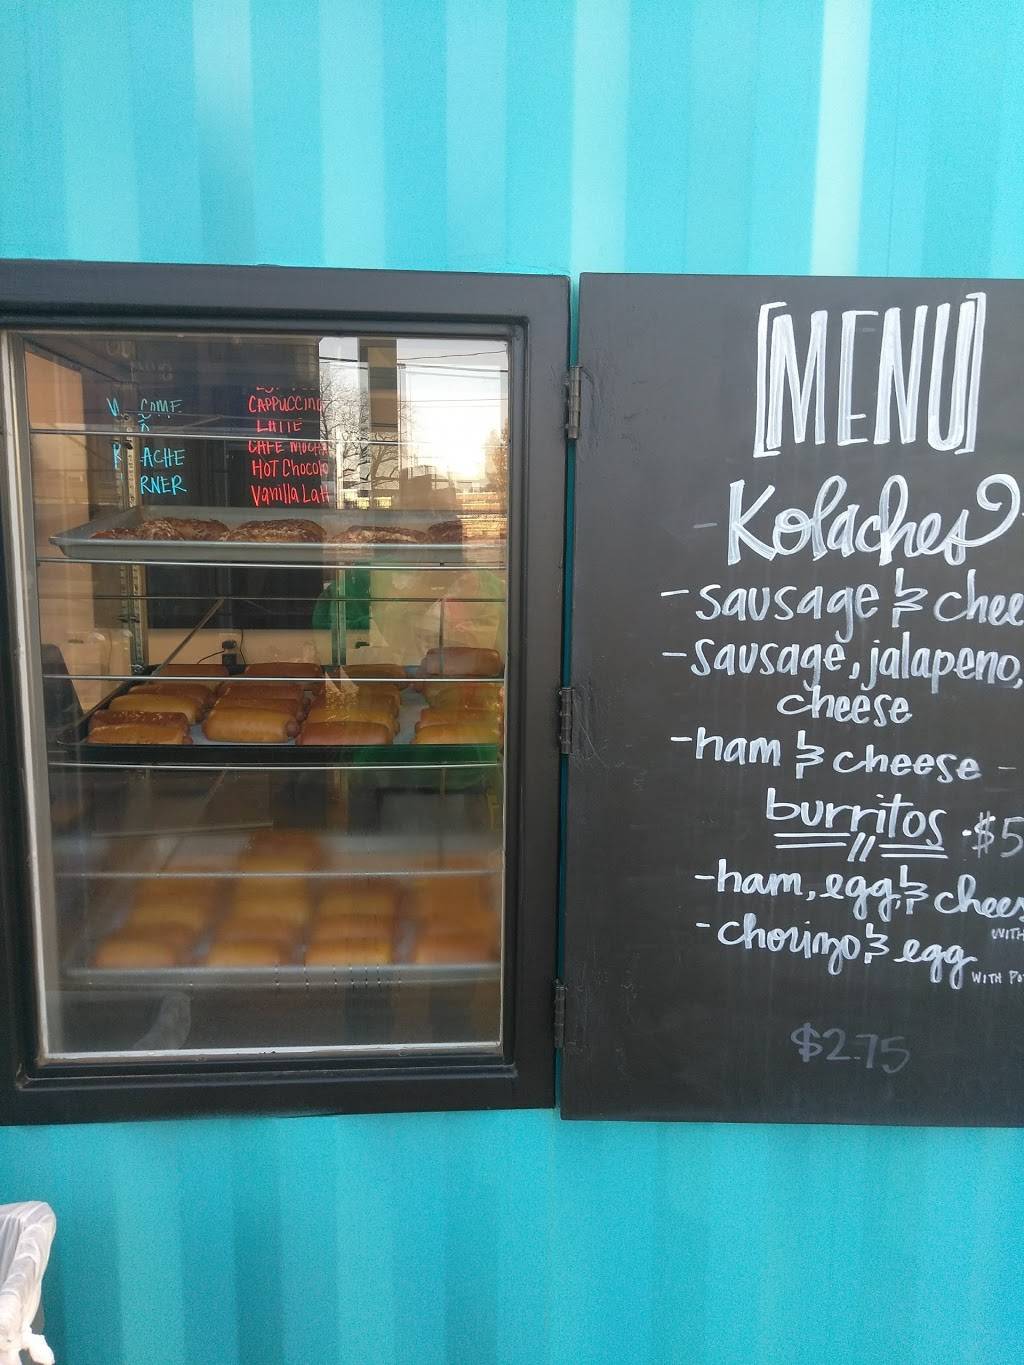 CAPPUCCINO
LATTE
CAFE MOCHA
HOT Chocola
Vanilla Lat
W COME
K ACHE
RNER
[MENU]
- Kolaches
- sausage & chee
- sausage, jalapeno,
cheese
- ham & cheese -
burritos - $5
- ham, egg, & chees
WITH
- chorizo & egg
WITH Po
$2.75